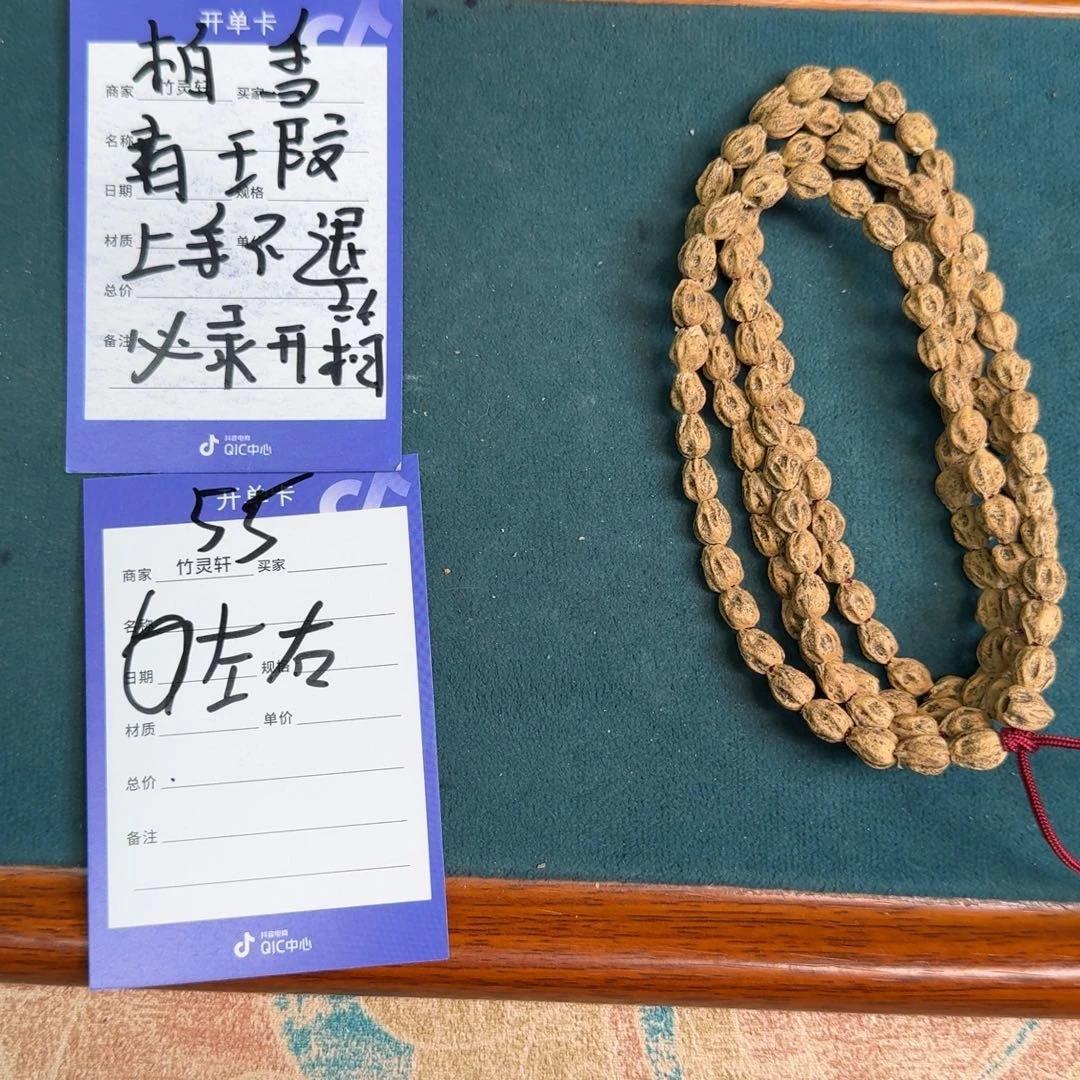 开单卡
柏
商家 竹灵轩 买家
名称
有 瑕
日期 规格
材质 单价
上手不退
总价
备注
必录开箱
抖音电商
QIC中心
55
开单卡
商家 竹灵轩 买家
名称
左右
日期 规格
材质 单价
总价
备注
抖音电商
QIC中心